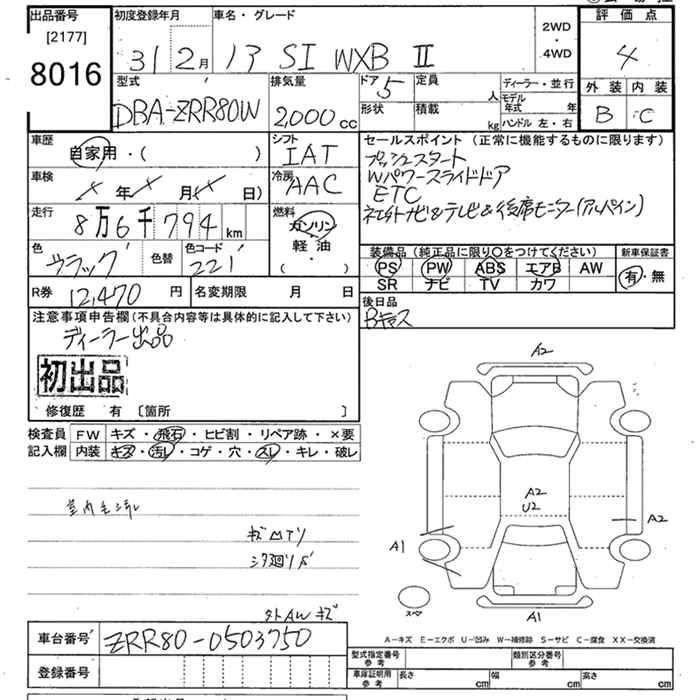 出品番号
[2177]
8016
初度登録年月
31 2月
車名・グレード
ノア SI WXB Ⅱ
2WD
・
4WD
評価点
4
外装 内装
B C
型式
DBA-ZRR80W
排気量
2,000 cc
ドア 5
形状
定員 人
積載 kg
ディーラー・並行
モデル年式 年
ハンドル 左・右
車歴
自家用・( )
シフト
IAT
セールスポイント (正常に機能するものに限ります)
プッシュスタート
Wパワースライドドア
ETC
社外ナビ&テレビ&後席モニター(アルパイン)
車検
× 年 × 月(× 日)
冷房
AAC
走行
8万6千794 km
燃料
ガソリン
軽油
( )
色
ブラック
色替
色コード
221
装備品 (純正品に限り○をつけてください)
PS PW ABS エアB AW
SR ナビ TV カワ
新車保証書
有・無
R券 12,470 円
名変期限 月 日
後日品
Bキャス
注意事項申告欄 (不具合内容等は具体的に記入して下さい)
ディーラー出品
初出品
修復歴 有 〔箇所 〕
検査員
記入欄
FW キズ・飛石・ヒビ割・リペア跡・×要
内装 キズ・汚レ・コゲ・穴・スレ・キレ・破レ
室内毛汚れ
外AWキズ
A2
A2
U2
A2
A1
A1
スペア
A-キズ E-エクボ U-凹み W-補修跡 S-サビ C-腐食 XX-交換済
車台番号 ZRR80-0503750
登録番号
型式指定番号
参考
類別区分番号
参考
車庫証明用
参考
長さ cm 幅 cm 高さ cm